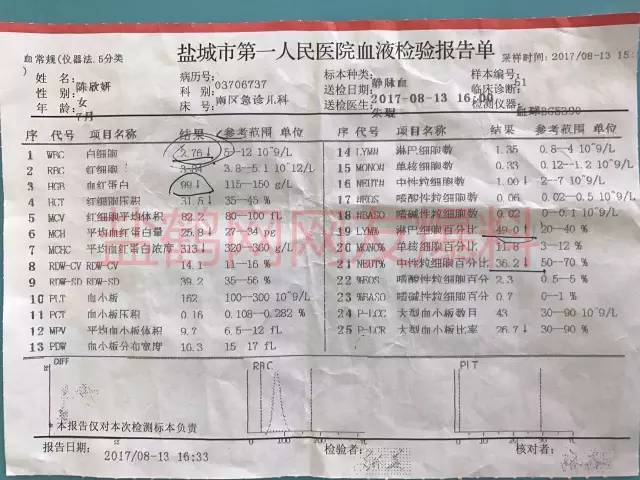 血常规(仪器法,5分类)
盐城市第一人民医院血液检验报告单
采样时间:2017/08-13 15:
姓 名: 陈欣妍 病历号: 03706737 标本种类: 静脉血 样本号: 51
性 别: 女 科 别: 南区急诊儿科 送检日期: 2017-08-13 16:00 临床诊断:
年 龄: 7月 床 号: 送检医生: 朱琨 检测仪器: 血球BC5390
序 代号 项目名称 结果 参考范围 单位 序 代号 项目名称 结果 参考范围 单位
1 WBC 白细胞 2.76↓ 5-12 10^9/L 14 LYM# 淋巴细胞数 1.35 0.8-4 10^9/L
2 RBC 红细胞 3.84 3.8-5.1 10^12/L 15 MONO# 单核细胞数 0.33 0.12-1.2 10^9/L
3 HGB 血红蛋白 99↓ 115-150 g/L 16 NEUT# 中性粒细胞数 1.00↓ 2-7 10^9/L
4 HCT 红细胞压积 31.5↓ 35-45 % 17 #EOS 嗜酸性粒细胞数 0.06 0.02-0.5 10^9/L
5 MCV 红细胞平均体积 82.2 80-100 fL 18 #BASO 嗜碱性粒细胞数 0.02 0-0.1 10^9/L
6 MCH 平均血红蛋白量 25.8↓ 27-34 pg 19 LYM% 淋巴细胞百分比 49.0↑ 20-40 %
7 MCHC 平均血红蛋白浓度 313↓ 320-360 g/L 20 MONO% 单核细胞百分比 11.8 3-12 %
8 RDW-CV RDW-CV 14.1 11-16 % 21 NEUT% 中性粒细胞百分比 36.2↓ 50-70 %
9 RDW-SD RDW-SD 39.2 35-56 % 22 %EOS 嗜酸性粒细胞百分 2.3 0.5-5 %
10 PLT 血小板 162 100-300 10^9/L 23 %BASO 嗜碱性粒细胞百分 0.7 0-1 %
11 PCT 血小板压积 0.16 0.108-0.282 % 24 P-LCC 大型血小板数目 43 30-90 10^9/L
12 MPV 平均血小板体积 9.7 6.5-12 fL 25 P-LCR 大型血小板比率 26.7↓ 30-90 %
13 PDW 血小板分布宽度 10.3 15-17 fL
盐鹤网网友爆料
DIFF RBC PLT
* 本报告仅对本次检测标本负责
100 200 300 fL
报告日期: 2017/08-13 16:33 检验者: 核对者: